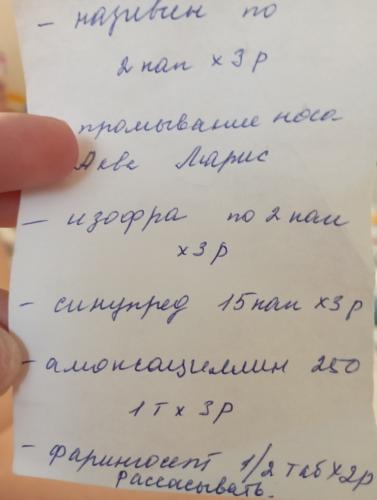 - називин по
2 кап x 3 р
промывание носа
Аква Ларис
- изофра по 2 кап
x 3 р
- синупред 15 кап x 3 р
- амоксациллин 250
1 т x 3 р
- фарингосепт 1/2 таб x 2р
Рассасывать.